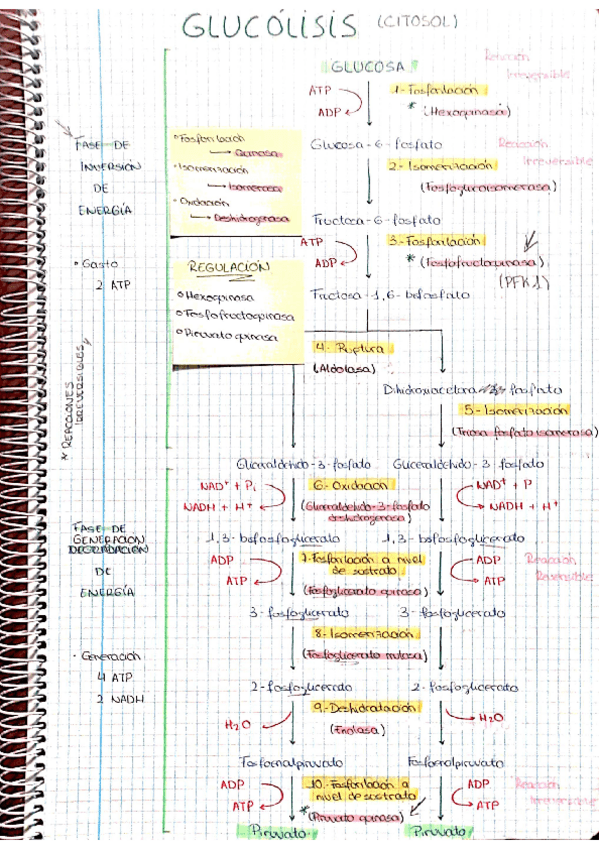 GLUCÓLISIS (CITOSOL)
GLUCOSA
Reacción
Irreversible
ATP
ADP
1- Fosforilación
* (Hexoquinasa)
FASE DE
INVERSIÓN
DE
ENERGÍA
• Gasto
2 ATP
• Fosforilación
→ Quinasa
• Isomerización
→ Isomerasa
• Oxidación
→ Deshidrogenasa
Glucosa-6-fosfato
Reacción
Irreversible
2- Isomerización
(Fosfoglucoisomerasa)
Fructosa-6-fosfato
ATP
ADP
3- Fosforilación
* (Fosfofructoquinasa)
(PFK1)
REGULACIÓN
Hexoquinasa
Fosfofructoquinasa
Piruvato quinasa
Fructosa-1,6-bifosfato
4- Ruptura
(Aldolasa)
* REACCIONES
IRREVERSIBLES
Dihidroxiacetona fosfato
5- Isomerización
(Triosa fosfato isomerasa)
Gliceraldehido-3-fosfato Gliceraldehido-3-fosfato
NAD+ + Pi
NADH + H+
6- Oxidación
(Gliceraldehido-3-fosfato
deshidrogenasa)
NAD+ + P
NADH + H+
FASE DE
GENERACIÓN
DEGRADACIÓN
DE
ENERGÍA
• Generación
4 ATP
2 NADH
1,3-bofosfoglicerato 1,3-bofosfoglicerato
ADP
ATP
7- Fosforilación a nivel
de sustrato
(Fosfoglicerato quinasa)
ADP
ATP
Reacción
Reversible
3-fosfoglicerato 3-fosfoglicerato
8- Isomerización
(Fosfoglicerato mutasa)
2-fosfoglicerato 2-fosfoglicerato
9- Deshidratación
(Enolasa)
H2O
H2O
Fosfoenolpiruvato Fosfoenolpiruvato
ADP
ATP
10- Fosforilación a
nivel de sustrato
* (Piruvato quinasa)
ADP
ATP
Reacción
Irreversible
Piruvato Piruvato